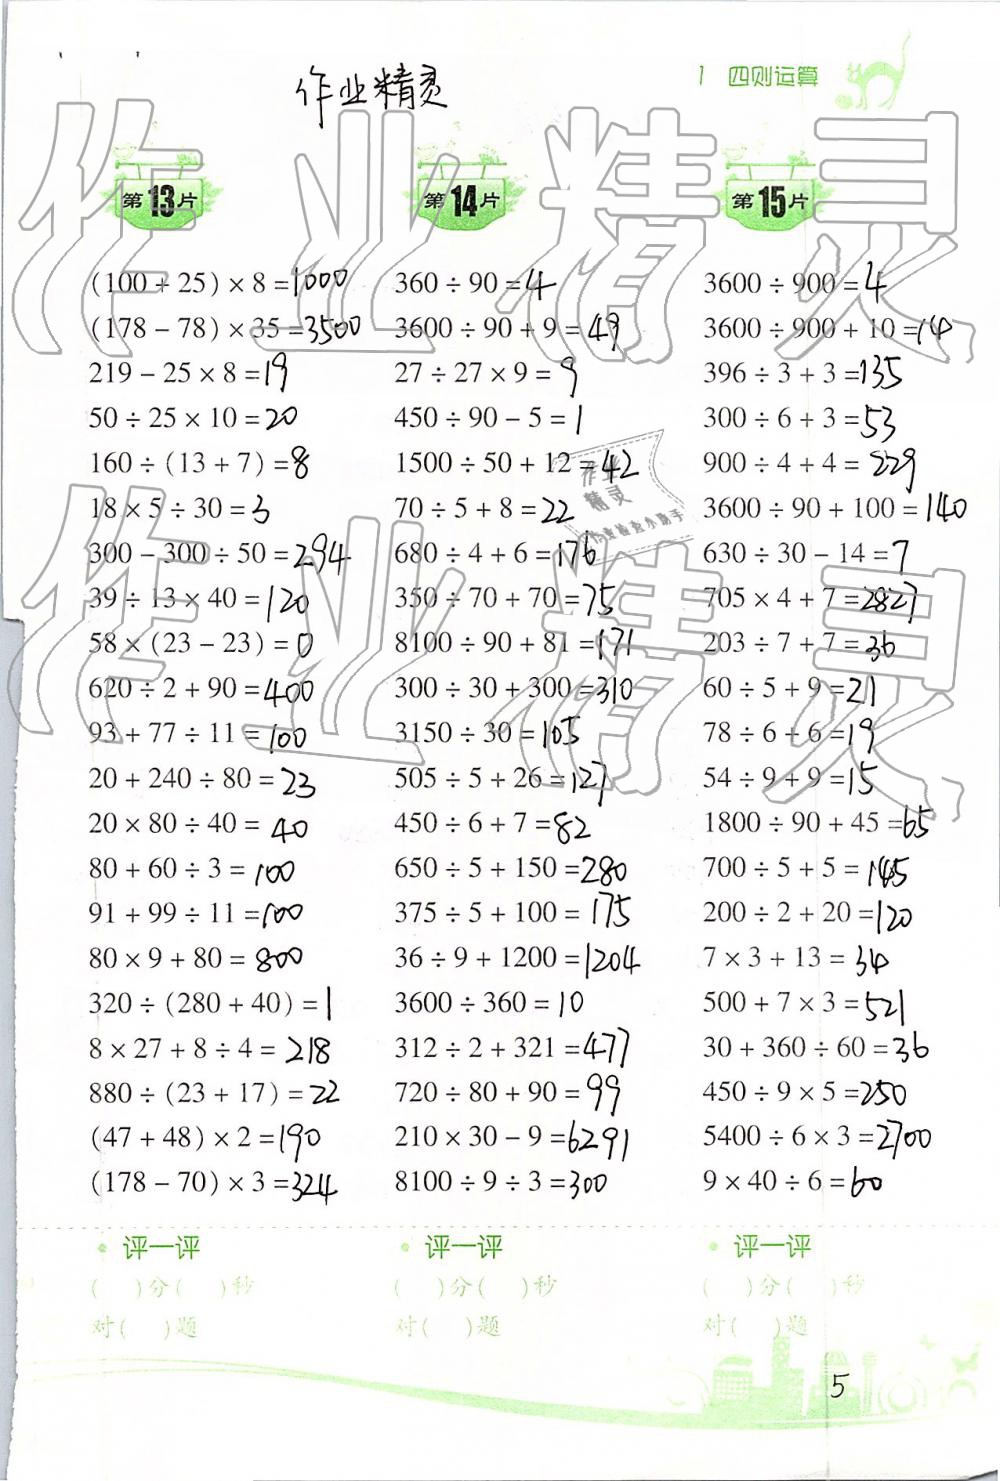 1 四则运算
作业精灵
第13片
(100+25)×8=1000
(178-78)×35=3500
219-25×8=19
50÷25×10=20
160÷(13+7)=8
18×5÷30=3
300-300÷50=294
39÷13×40=120
58×(23-23)=0
620÷2+90=400
93+77÷11=100
20+240÷80=23
20×80÷40=40
80+60÷3=100
91+99÷11=100
80×9+80=800
320÷(280+40)=1
8×27+8÷4=218
880÷(23+17)=22
(47+48)×2=190
(178-70)×3=324
评一评
( )分( )秒
对( )题
第14片
360÷90=4
3600÷90+9=49
27÷27×9=9
450÷90-5=1
1500÷50+12=42
70÷5+8=22
680÷4+6=176
350÷70+70=75
8100÷90+81=171
300÷30+300=310
3150÷30=105
505÷5+26=127
450÷6+7=82
650÷5+150=280
375÷5+100=175
36÷9+1200=1204
3600÷360=10
312÷2+321=477
720÷80+90=99
210×30-9=6291
8100÷9÷3=300
评一评
( )分( )秒
对( )题
第15片
3600÷900=4
3600÷900+10=14
396÷3+3=135
300÷6+3=53
900÷4+4=229
3600÷90+100=140
630÷30-14=7
705×4+7=2827
203÷7+7=36
60÷5+9=21
78÷6+6=19
54÷9+9=15
1800÷90+45=65
700÷5+5=145
200÷2+20=120
7×3+13=34
500+7×3=521
30+360÷60=36
450÷9×5=250
5400÷6×3=2700
9×40÷6=60
评一评
( )分( )秒
对( )题
5
作业精灵
作业精灵
作业
精灵